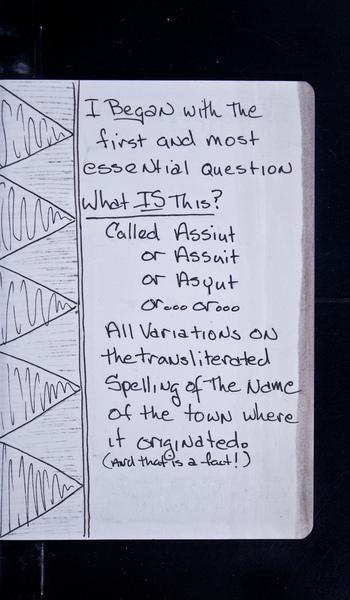 I Began with the
first and most
essential question
What IS This?
Called Assiut
or Assuit
or Asyut
or... or...
All Variations on
the transliterated
Spelling of The Name
of the town where
it originated.
(And that is a fact!)